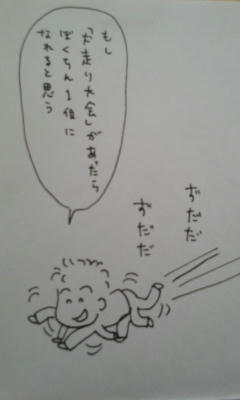 もし
「犬走り大会」があったら
ぼくちん1位に
なれると思う
ずだだ
ずだだ